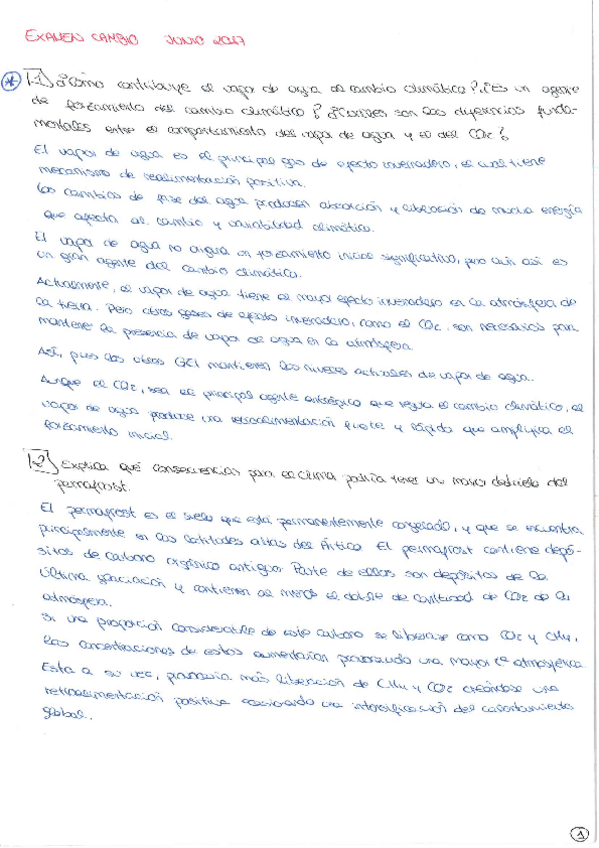 EXAMEN CAMBIO JUNIO 2017
* 1. ¿Cómo contribuye el vapor de agua al cambio climático? ¿Es un agente
de forzamiento del cambio climático? ¿Cuáles son las diferencias funda-
mentales entre el comportamiento del vapor de agua y el del CO2?
El vapor de agua es el principal gas de efecto invernadero, el cual tiene
mecanismo de realimentación positiva.
Los cambios de fase del agua producen absorción y liberación de mucha energía
que afecta al cambio y variabilidad climática.
El vapor de agua no origina un forzamiento inicial significativo, pero aún así es
un gran agente del cambio climático.
Actualmente, el vapor de agua tiene el mayor efecto invernadero en la atmósfera de
la tierra. Pero otros gases de efecto invernadero, como el CO2, son necesarios para
mantener la presencia de vapor de agua en la atmósfera.
Así, pues los otros GEI mantienen los niveles actuales de vapor de agua.
Aunque el CO2, sea el principal agente antrópico que regula el cambio climático, el
vapor de agua produce una retroalimentación fuerte y rápida que amplifica el
forzamiento inicial.
2 Explica qué consecuencias para el clima podría tener un mayor deshielo del
permafrost.
El permafrost es el suelo que está permanentemente congelado, y que se encuentra
principalmente en las latitudes altas del Ártico. El permafrost contiene depó-
sitos de carbono orgánico antiguo. Parte de ellos son depósitos de la
última glaciación y contienen al menos el doble de cantidad de CO2 de la
atmósfera.
Si una proporción considerable de este carbono se liberase como CO2 y CH4,
las concentraciones de estos aumentarían provocando una mayor tª atmosférica.
Esta a su vez, provocaría más liberación de CH4 y CO2 creándose una
retroalimentación positiva ocasionando una intensificación del calentamiento
global.
1